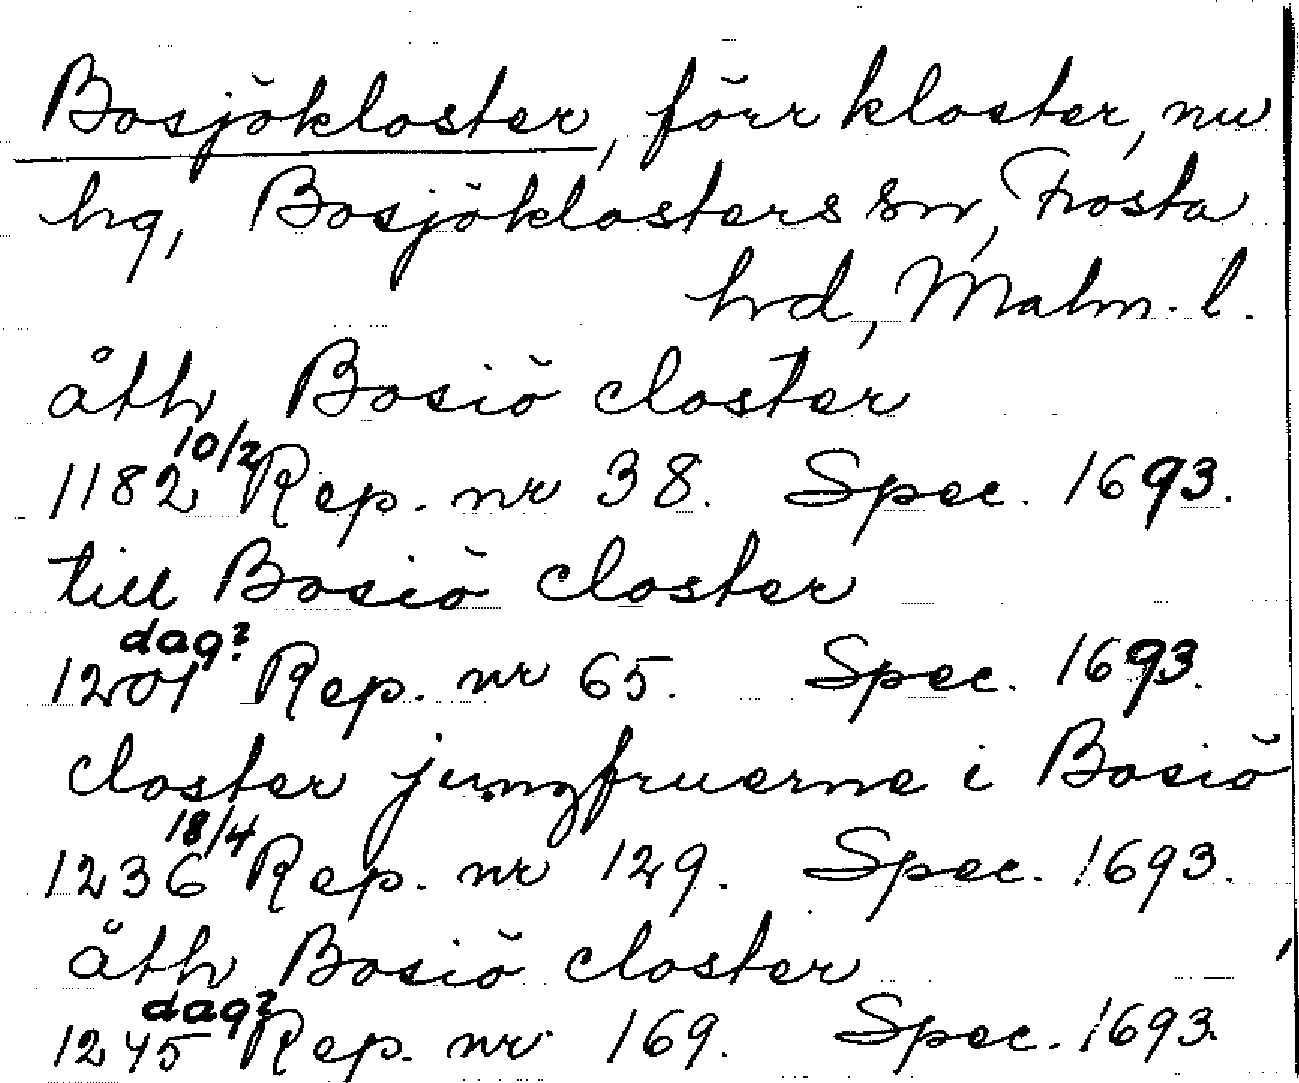 Bosjökloster, förr kloster, nu
hg, Bosjöklosters sn, Frosta
hrd, Malm. l.
åth Bosiö closter
1182 10/2 Rep. nr 38. Spec. 1693.
till Bosiö closter
1201 dag? Rep. nr 65. Spec. 1693.
closter jungfruerne i Bosiö
1236 18/4 Rep. nr 129. Spec. 1693.
åth Bosiö closter
1245 dag? Rep. nr 169. Spec. 1693.